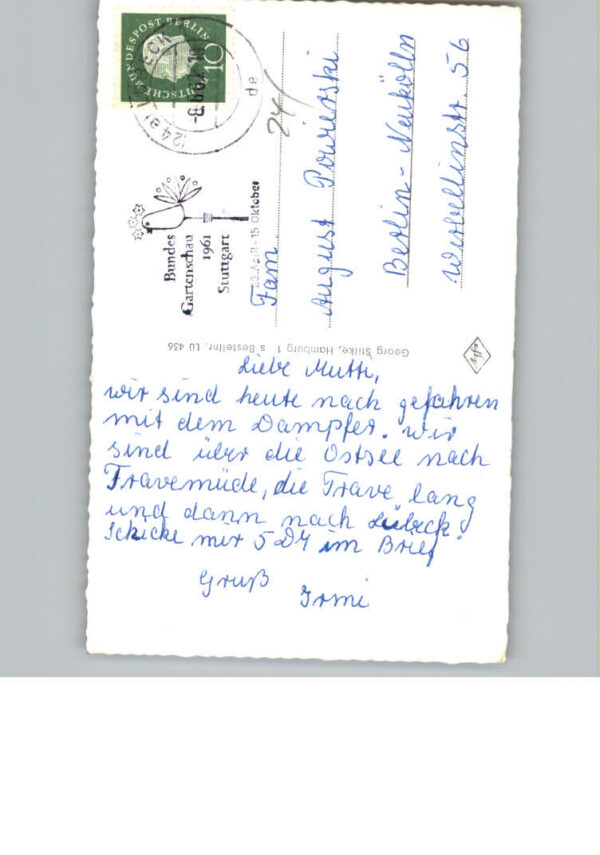 DEUTSCHE BUNDESPOST BERLIN
10
(24a)
Bundes
Gartenschau
1961
Stuttgart
15. Oktober
24/
Fam.
August
Berlin-Neukölln
Werbellinstr. 56
Georg Stilke, Hamburg 1 s Bestellnr. Lü 456
Liebe Mutti,
wir sind heute nach gefahren
mit dem Dampfer. Wir
sind über die Ostsee nach
Travemüde, die Trave lang
und dann nach Lübeck.
Schicke mir 5 DM im Brief!
Gruß
Irmi